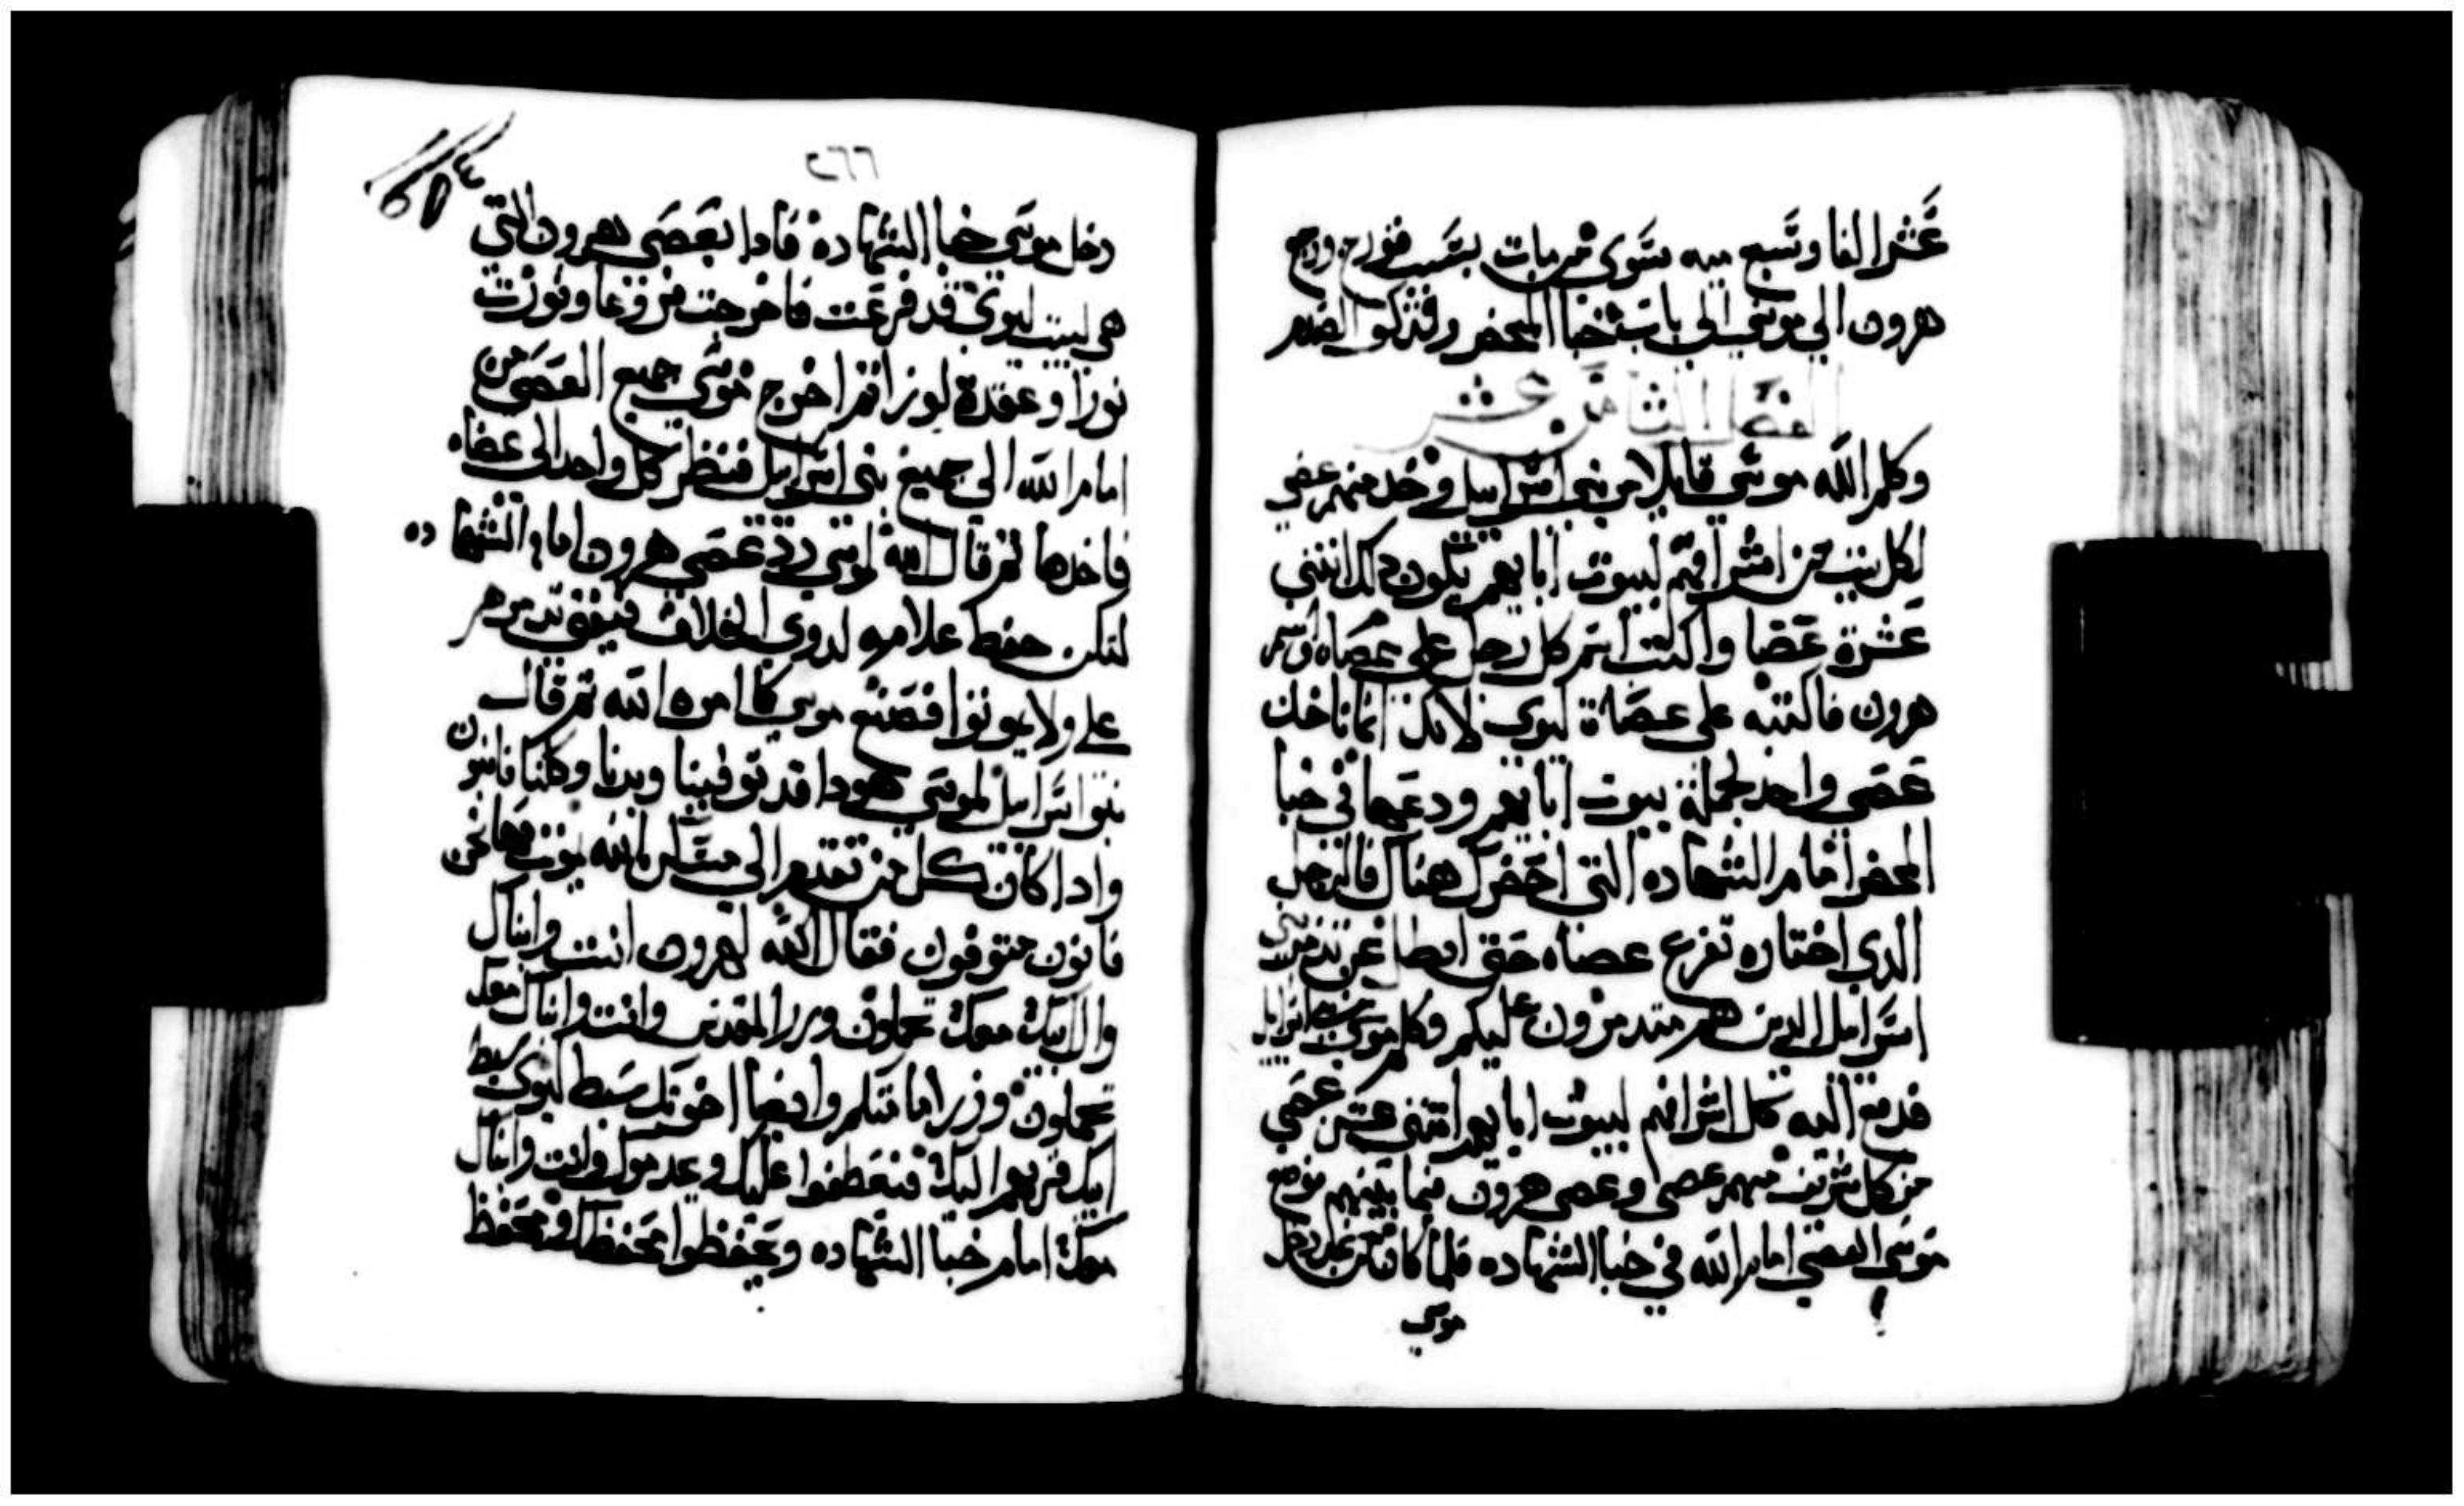 عشر الفا وسبع ميه سوى من مات بسبب قورح ورجع
هرون الي موسى الي باب خبا المحضر وقد كف الضر
الفصل الثامن عشر
وكلم الله موسى قايلا مر بني اسراييل وخد منهم عصي
لكل بيت من اشرافهم لبيوت ابايهم تكون دلك اثنتي
عشرة عصا واكتب اسم كل رجل على عصاه واسم
هرون فاكتبه على عصاة ليوي لانك انما تاخد
عصي واحد لجملة بيوت ابايهم ودعها في خبا
المحضر امام الشهاده التي احضرك هناك فالرجل
الدي اختاره تفرع عصاه حتى ابطل عن تدمر بني
اسراييل الدين هم متدمرون عليكم وكلم موسى اسراييل
فدفع اليه كل اشرافهم لبيوت ابايهم اثنتي عشر عصي
من كل شريف منهم عصي وعصي هرون فيما بينهم فوضع
موسى العصي امام الله في خبا الشهاده فلما كان من غد دخل
موسي
٢٦٦
دخل موسى خبا الشهادة فادا بعصى هرون التي
هي لبيت ليوي قد فرعت فاخرجت فروعا ونورت
نورا وعقدة لوزا ثم اخرج موسى جميع العصي من
امام الله الي جميع بني اسراييل فنظر كل واحد الى عصاه
فاخدها ثم قال الله لموسى رد عصى هرون امام الشهاده
لتكن حفظ علامه لدوي الخلاف فيفنى تدمرهم
علي ولا يموتوا فصنع موسى كما امره الله ثم قال
بنوا اسراييل لموسى هودا قد توفينا وبدنا وكلنا فانيون
وادا كان كل من تقدم الي مسكن الله يموت فها نحن
فانون متوفون فقال الله لهرون انت وابناك
وال ابيك معك تحملون وزر المقدس وانت وابناك معك
تحملون وزر امامتكم وايضا اخوتك سبط ليوي سبط
ابيك قربهم اليك فينعطفوا عليك وعدموك وانت وابناك
معك امام خبا الشهاده ويحفظوا محفظك ومحفظ